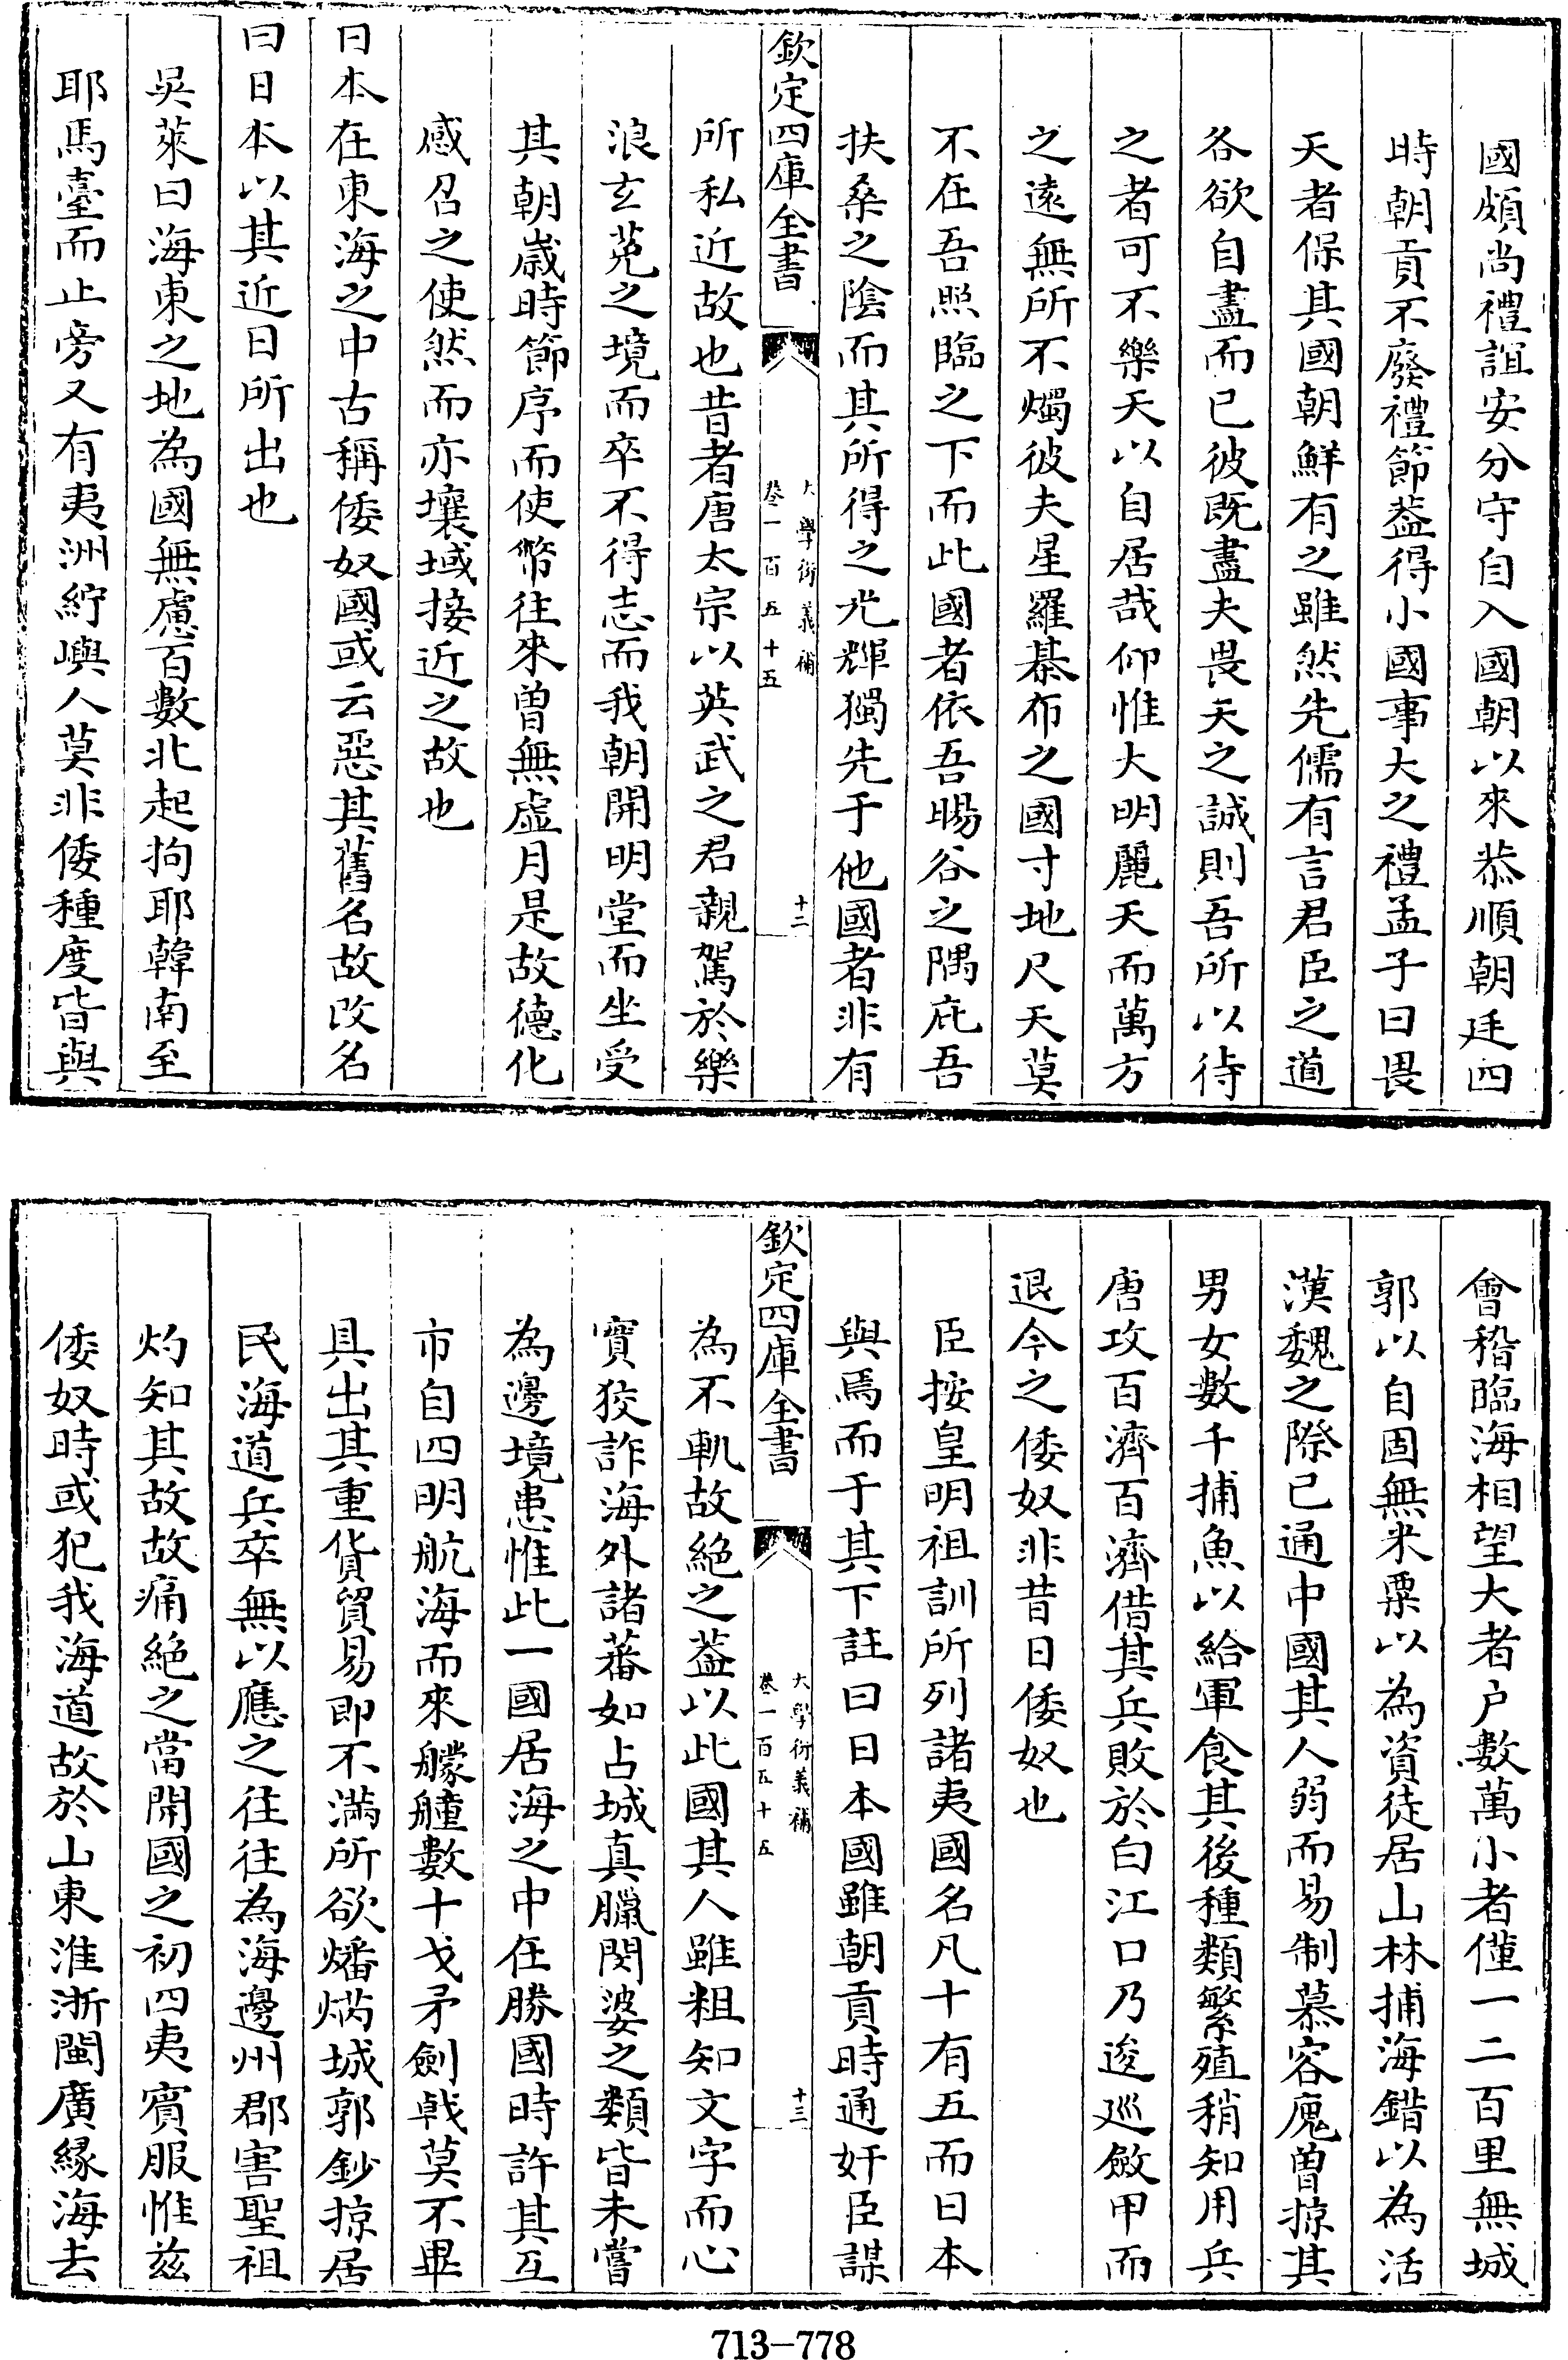 國頗尚禮誼安分守自入國朝以來恭順朝廷四
時朝貢不廢禮節葢得小國事大之禮孟子曰畏
天者保其國朝鮮有之雖然先儒有言君臣之道
各欲自盡而已彼既盡夫畏天之誠則吾所以待
之者可不樂天以自居哉仰惟大明麗天而萬方
之遠無所不燭彼夫星羅棊布之國寸地尺天莫
不在吾照臨之下而此國者依吾暘谷之隅庇吾
扶桑之陰而其所得之光輝獨先于他國者非有
欽定四庫全書
大學衍義補
卷一百五十五
十二
所私近故也昔者唐太宗以英武之君親駕於樂
浪玄菟之境而卒不得志而我朝開明堂而坐受
其朝嵗時節序而使幣往來曾無虛月是故德化
感召之使然而亦壤域接近之故也
日本在東海之中古稱倭奴國或云惡其舊名故改名
曰日本以其近日所出也
吳萊曰海東之地為國無慮百數北起拘耶韓南至
耶馬臺而止旁又有夷洲紵嶼人莫非倭種度皆與
會稽臨海相望大者户數萬小者僅一二百里無城
郭以自固無米粟以為資徒居山林捕海錯以為活
漢魏之際已通中國其人弱而易制慕容廆曾掠其
男女數千捕魚以給軍食其後種類繁殖稍知用兵
唐攻百濟百濟借其兵敗於白江口乃逡巡斂甲而
退今之倭奴非昔日倭奴也
臣按皇明祖訓所列諸夷國名凡十有五而日本
與焉而于其下註曰日本國雖朝貢時通奸臣謀
欽定四庫全書
大學衍義補
卷一百五十五
十三
為不軌故絶之葢以此國其人雖粗知文字而心
實狡詐海外諸蕃如占城真臘闍婆之類皆未嘗
為邊境患惟此一國居海之中在勝國時許其互
市自四明航海而來艨艟數十戈矛劍戟莫不畢
具出其重貨貿易即不滿所欲燔焫城郭鈔掠居
民海道兵卒無以應之往往為海邊州郡害聖祖
灼知其故故痛絶之當開國之初四夷賓服惟茲
倭奴時或犯我海道故於山東淮浙閩廣緣海去
713-778